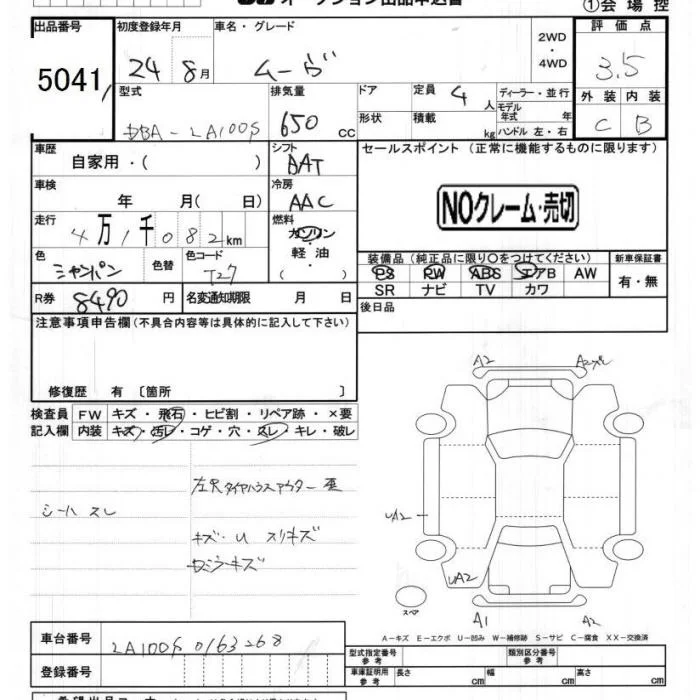 オークション出品申込書
①会場控
出品番号 初度登録年月 車名・グレード 評価点
5041 24年8月 ムーヴ 2WD・4WD 3.5
型式 排気量 ドア 定員 4人 ディーラー・並行 外装 内装
DBA-LA100S 650cc 形状 積載 kg モデル年式 年 C B
ハンドル 左・右
車歴 自家用・( ) シフト DAT セールスポイント (正常に機能するものに限ります)
車検 年 月( 日) 冷房 AAC NOクレーム・売切
走行 4万1千082km 燃料 ガソリン・軽油・( )
色 シャンパン 色替 色コード T27
装備品(純正品に限り○をつけてください) 新車保証書
PS PW ABS エアB AW 有・無
SR ナビ TV カワ
R券 8490円 名変通知期限 月 日
後日品
注意事項申告欄(不具合内容等は具体的に記入して下さい)
修復歴 有〔箇所 〕
検査員 FW キズ・飛石・ヒビ割・リペア跡・×要
記入欄 内装 キズ・汚レ・コゲ・穴・スレ・キレ・破レ
シート スレ
キズ・U スリキズ
A2
UA2
UA2
A1 A2
スペア
A-キズ E-エクボ U-凹み W-補修跡 S-サビ C-腐食 XX-交換済
車台番号 LA100S 0163268
登録番号
型式指定番号 参考 類別区分番号 参考
車庫証明用 参考 長さ cm 幅 cm 高さ cm